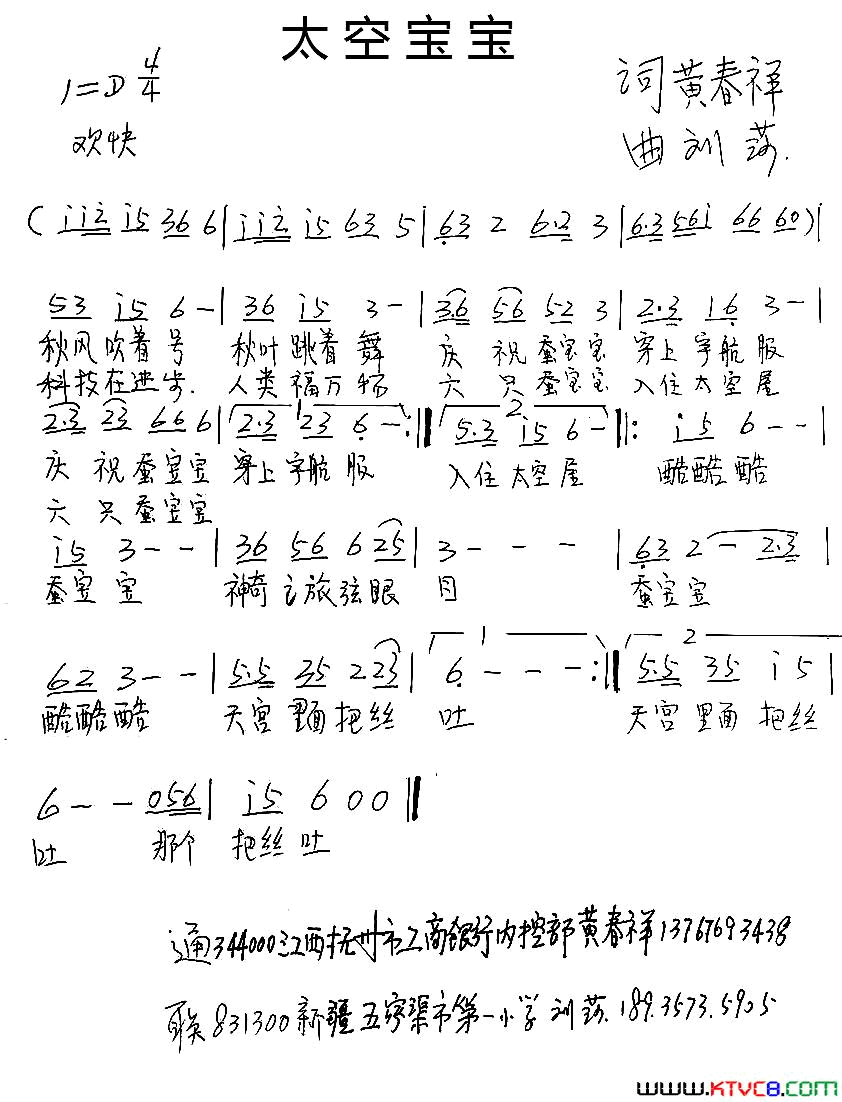 太空宝宝
1=D 4/4
词 黄春祥
欢快
曲 刘莎.
( i i 2 i 5 3 6 6 | i i 2 i 5 6 3 5 | 6 3 2 6·2 3 | 6·3 5 6 i 6 6 6 0 ) |
5 3 i 5 6 - | 3 6 i 5 3 - | 3 6 5 6 5 2 3 | 2·3 1 6 3 - |
秋风吹着号 秋叶跳着舞 庆祝蚕宝宝 穿上宇航服
科技在进步. 人类福万 六只蚕宝宝 入住太空屋
2·3 2 3 6 6 6 | 1 2·3 2 3 6 - :‖ 2 5·3 i 5 6 - ‖: i 5 6 - - |
庆祝蚕宝宝 穿上宇航服 入住太空屋 酷酷酷
六只蚕宝宝
i 5 3 - - | 3 6 5 6 6 2 5 | 3 - - - | 6 3 2 - 2·3 |
蚕宝宝 神奇之旅弦眼目 蚕宝宝
6 2 3 - - | 5·5 3 5 2 2 3 | 1 6 - - - :‖ 2 5·5 3 5 i 5 |
酷酷酷 天宫里面把丝 吐 天宫里面把丝
6 - - 0 5 6 | i 5 6 0 0 ‖
吐 那个 把丝吐
通344000江西抚州市工商银行内控部黄春祥13767693438
联831300新疆五家渠市第一小学 刘莎.189.3573.5905
www.KTVC8.com